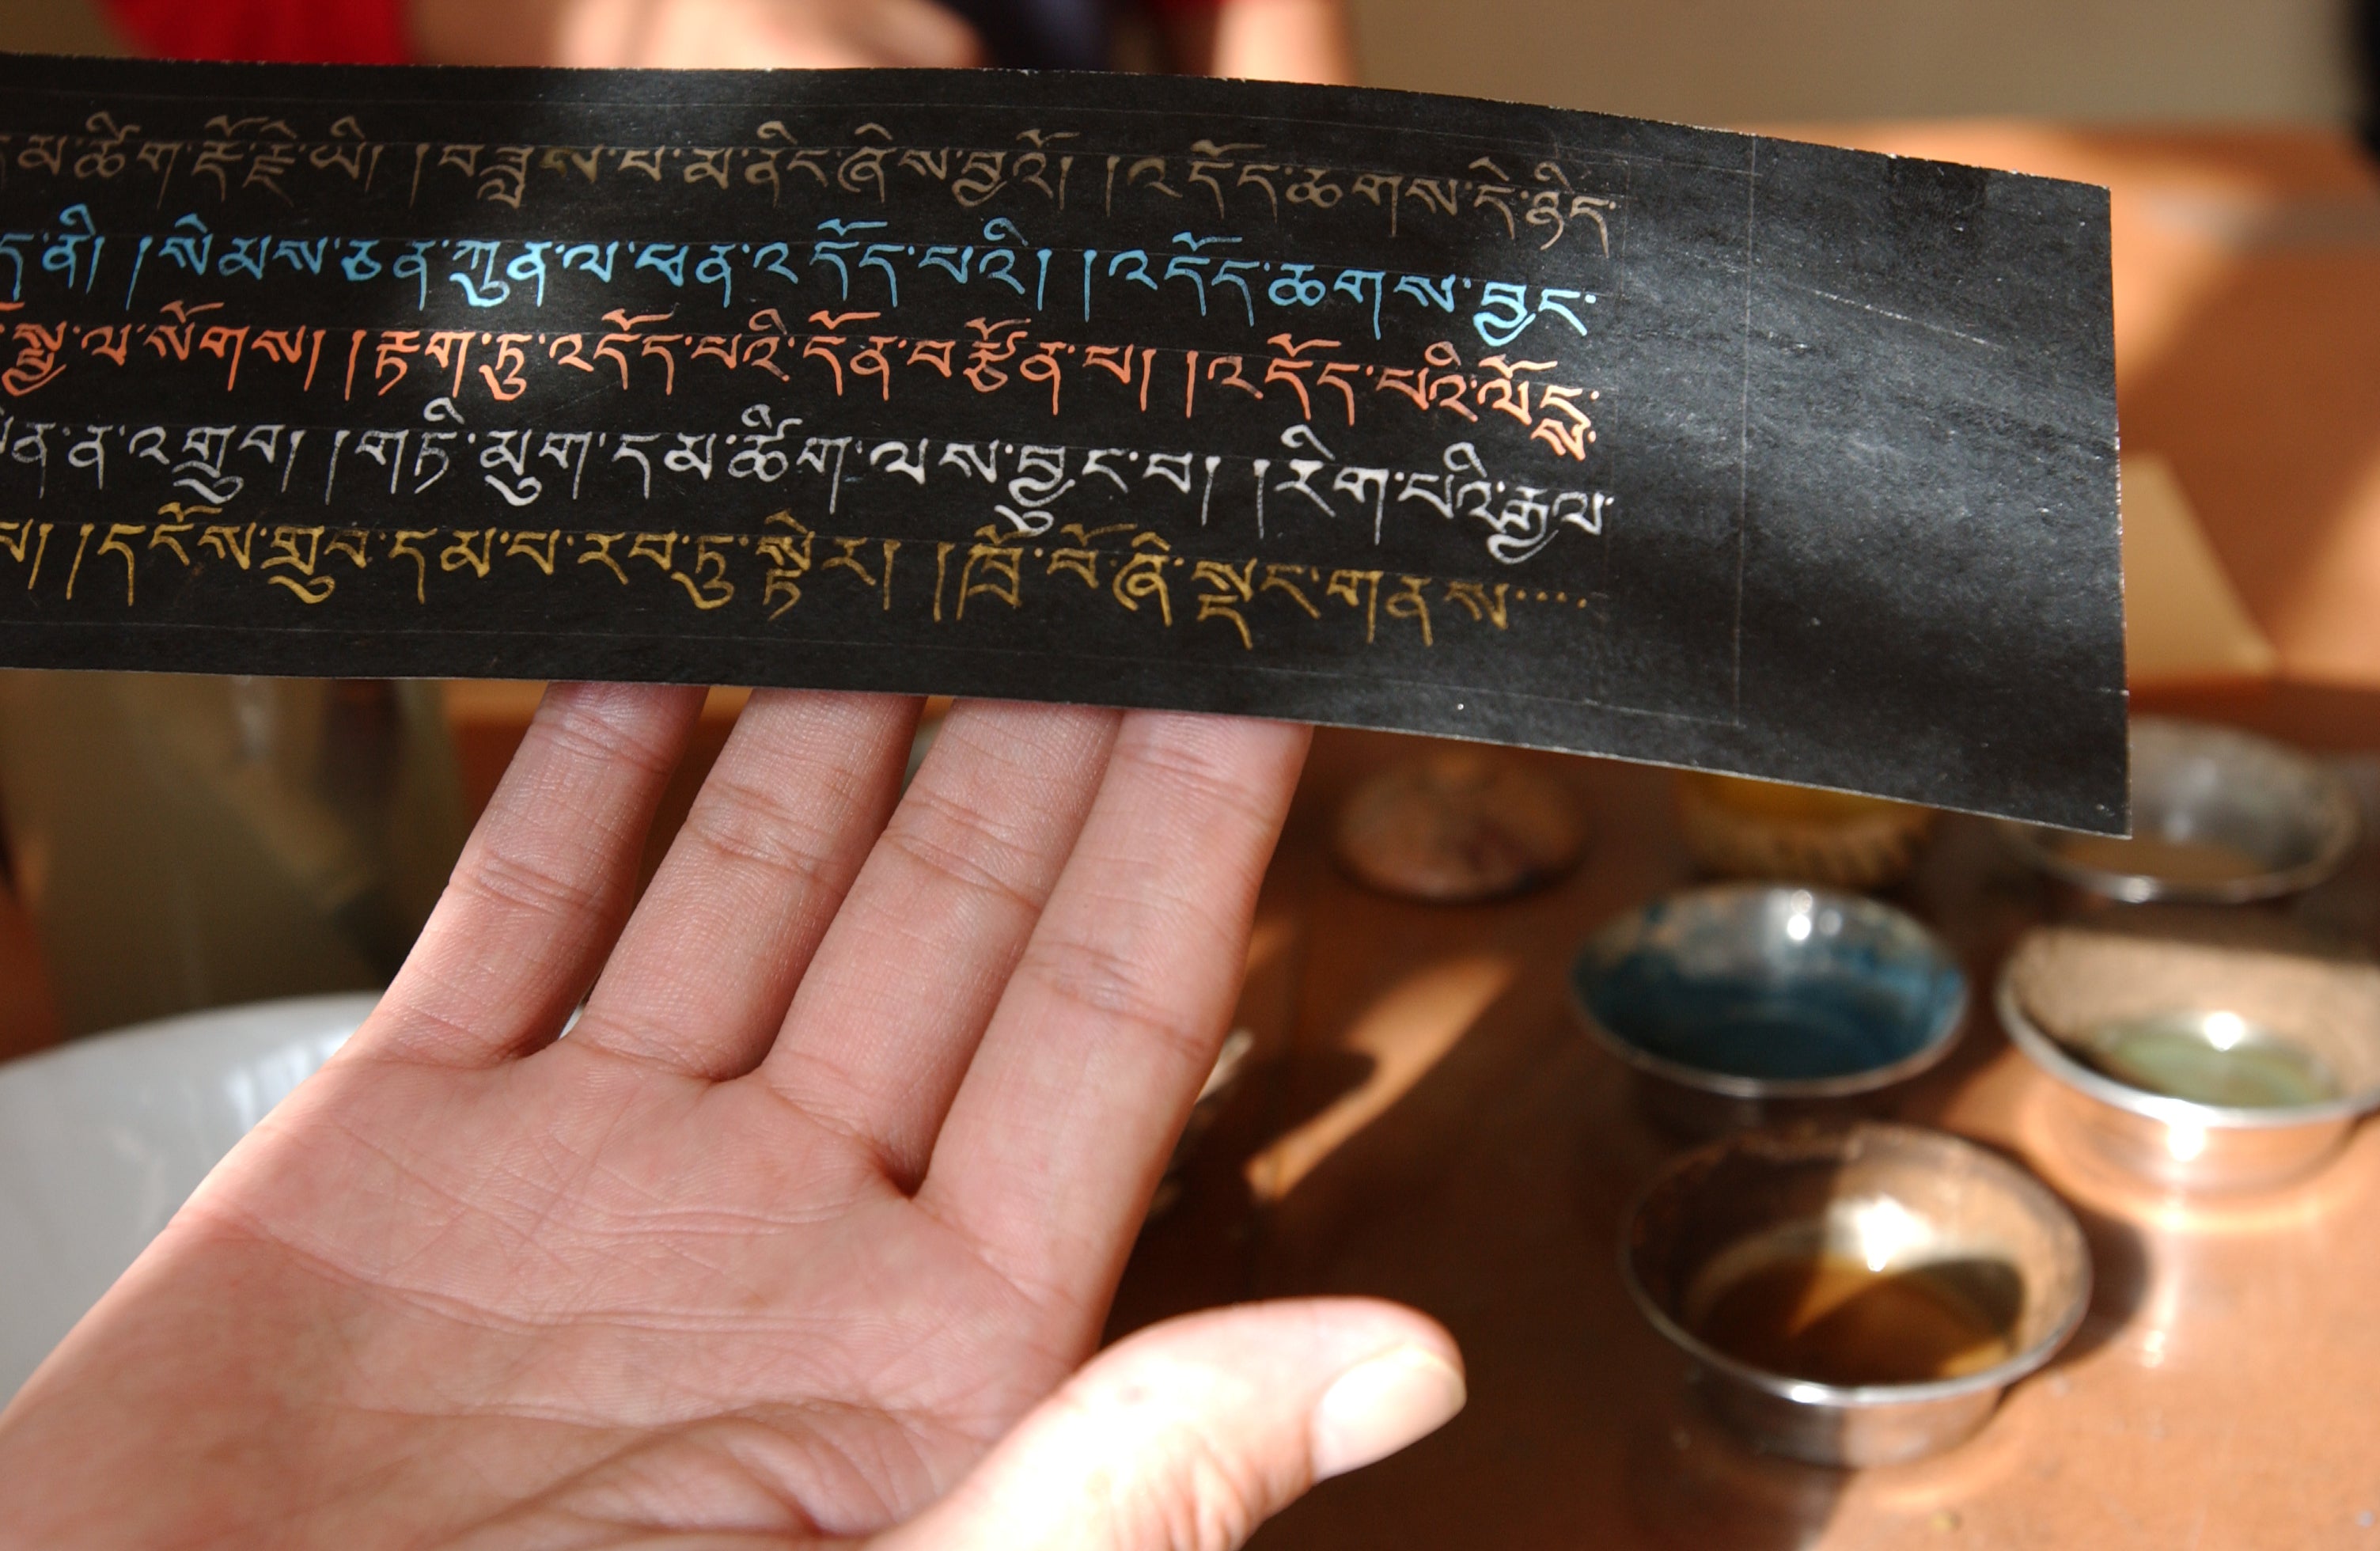 དམ་ཚིག་རྡོ་རྗེ་ཡི། །བཟླས་པ་མ་ནིང་ཞེས་བྱའོ། །འདོད་ཆགས་དེ་ཉིད་
ནི། །སེམས་ཅན་ཀུན་ལ་ཕན་འདོད་པའི། །འདོད་ཆགས་བྱང་
ལ་སོགས། །རྟག་ཏུ་འདོད་པའི་དོན་བརྩོན་པ། །འདོད་པའི་ལོངས་
ན་འགྲུབ། །གཏི་མུག་དམ་ཚིག་ལས་བྱུང་བ། །རིག་པའི་རྒྱལ་
།དངོས་གྲུབ་དམ་པ་རབ་ཏུ་སྟེར། །ཁྲོ་བོ་ཞི་སྡང་གནས་····